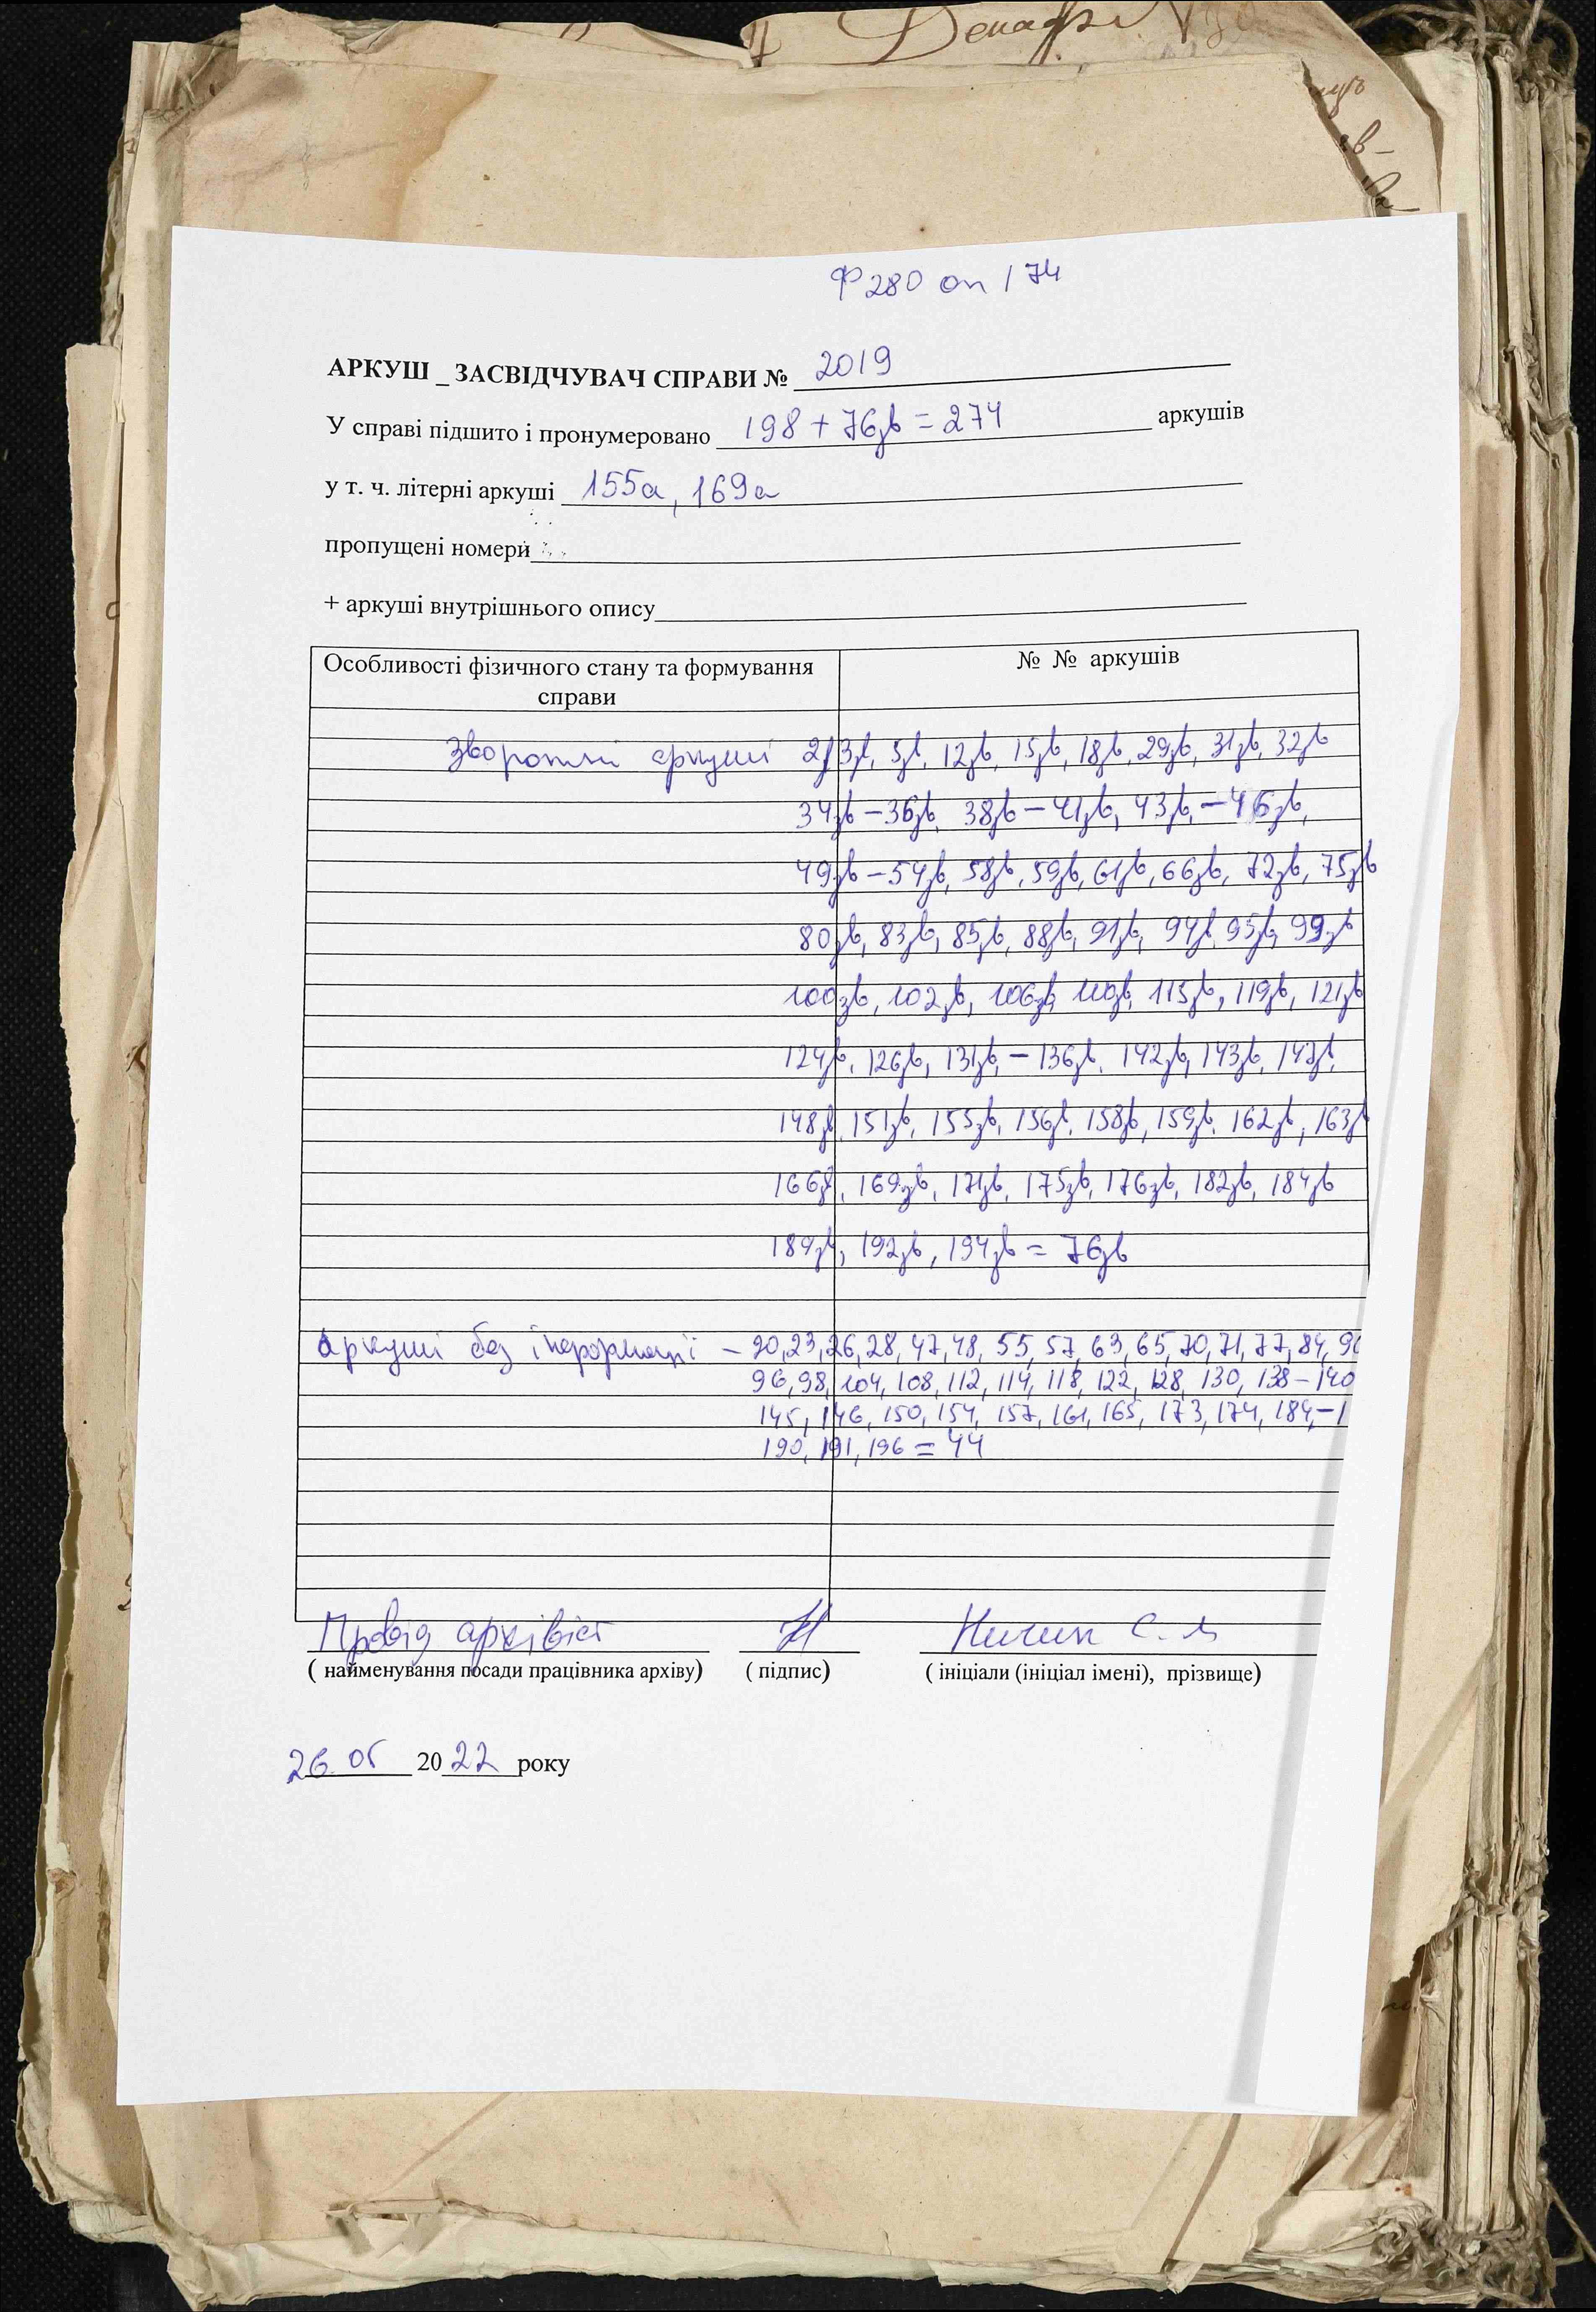 Декабр
Ф 280 оп 174
АРКУШ _ ЗАСВІДЧУВАЧ СПРАВИ № 2019
У справі підшито і пронумеровано 198 + 76зв = 274 аркушів
у т. ч. літерні аркуші 155а, 169а
пропущені номери
+ аркуші внутрішнього опису
Особливості фізичного стану та формування справи
№ № аркушів
Зворотні аркуші 2з, 3зв, 5зв, 12зв, 15зв, 18зв, 29зв, 31зв, 32зв
34зв – 36зв, 38зв – 41зв, 43зв, – 46зв,
49зв – 54зв, 58зв, 59зв, 61зв, 66зв, 72зв, 75зв
80зв, 83зв, 85зв, 88зв, 91зв, 94зв, 95зв, 99зв
100зв, 102зв, 106зв, 110зв, 115зв, 119зв, 121зв
124зв, 126зв, 131зв, – 136зв, 142зв, 143зв, 147зв,
148зв, 151зв, 155зв, 156зв, 158зв, 159зв, 162зв, 163зв
166зв, 169зв, 171зв, 175зв, 176зв, 182зв, 184зв
189зв, 192зв, 194зв = 76зв
Аркуші без інформації – 20, 23, 26, 28, 47, 48, 55, 57, 63, 65, 70, 71, 77, 84, 90
96, 98, 104, 108, 112, 114, 118, 122, 128, 130, 138 – 140
145, 146, 150, 154, 157, 161, 165, 173, 174, 184, – 1
190, 191, 196 = 44
Провід архівіст
( найменування посади працівника архіву) ( підпис) ( ініціали (ініціал імені), прізвище)
26.05 2022 року